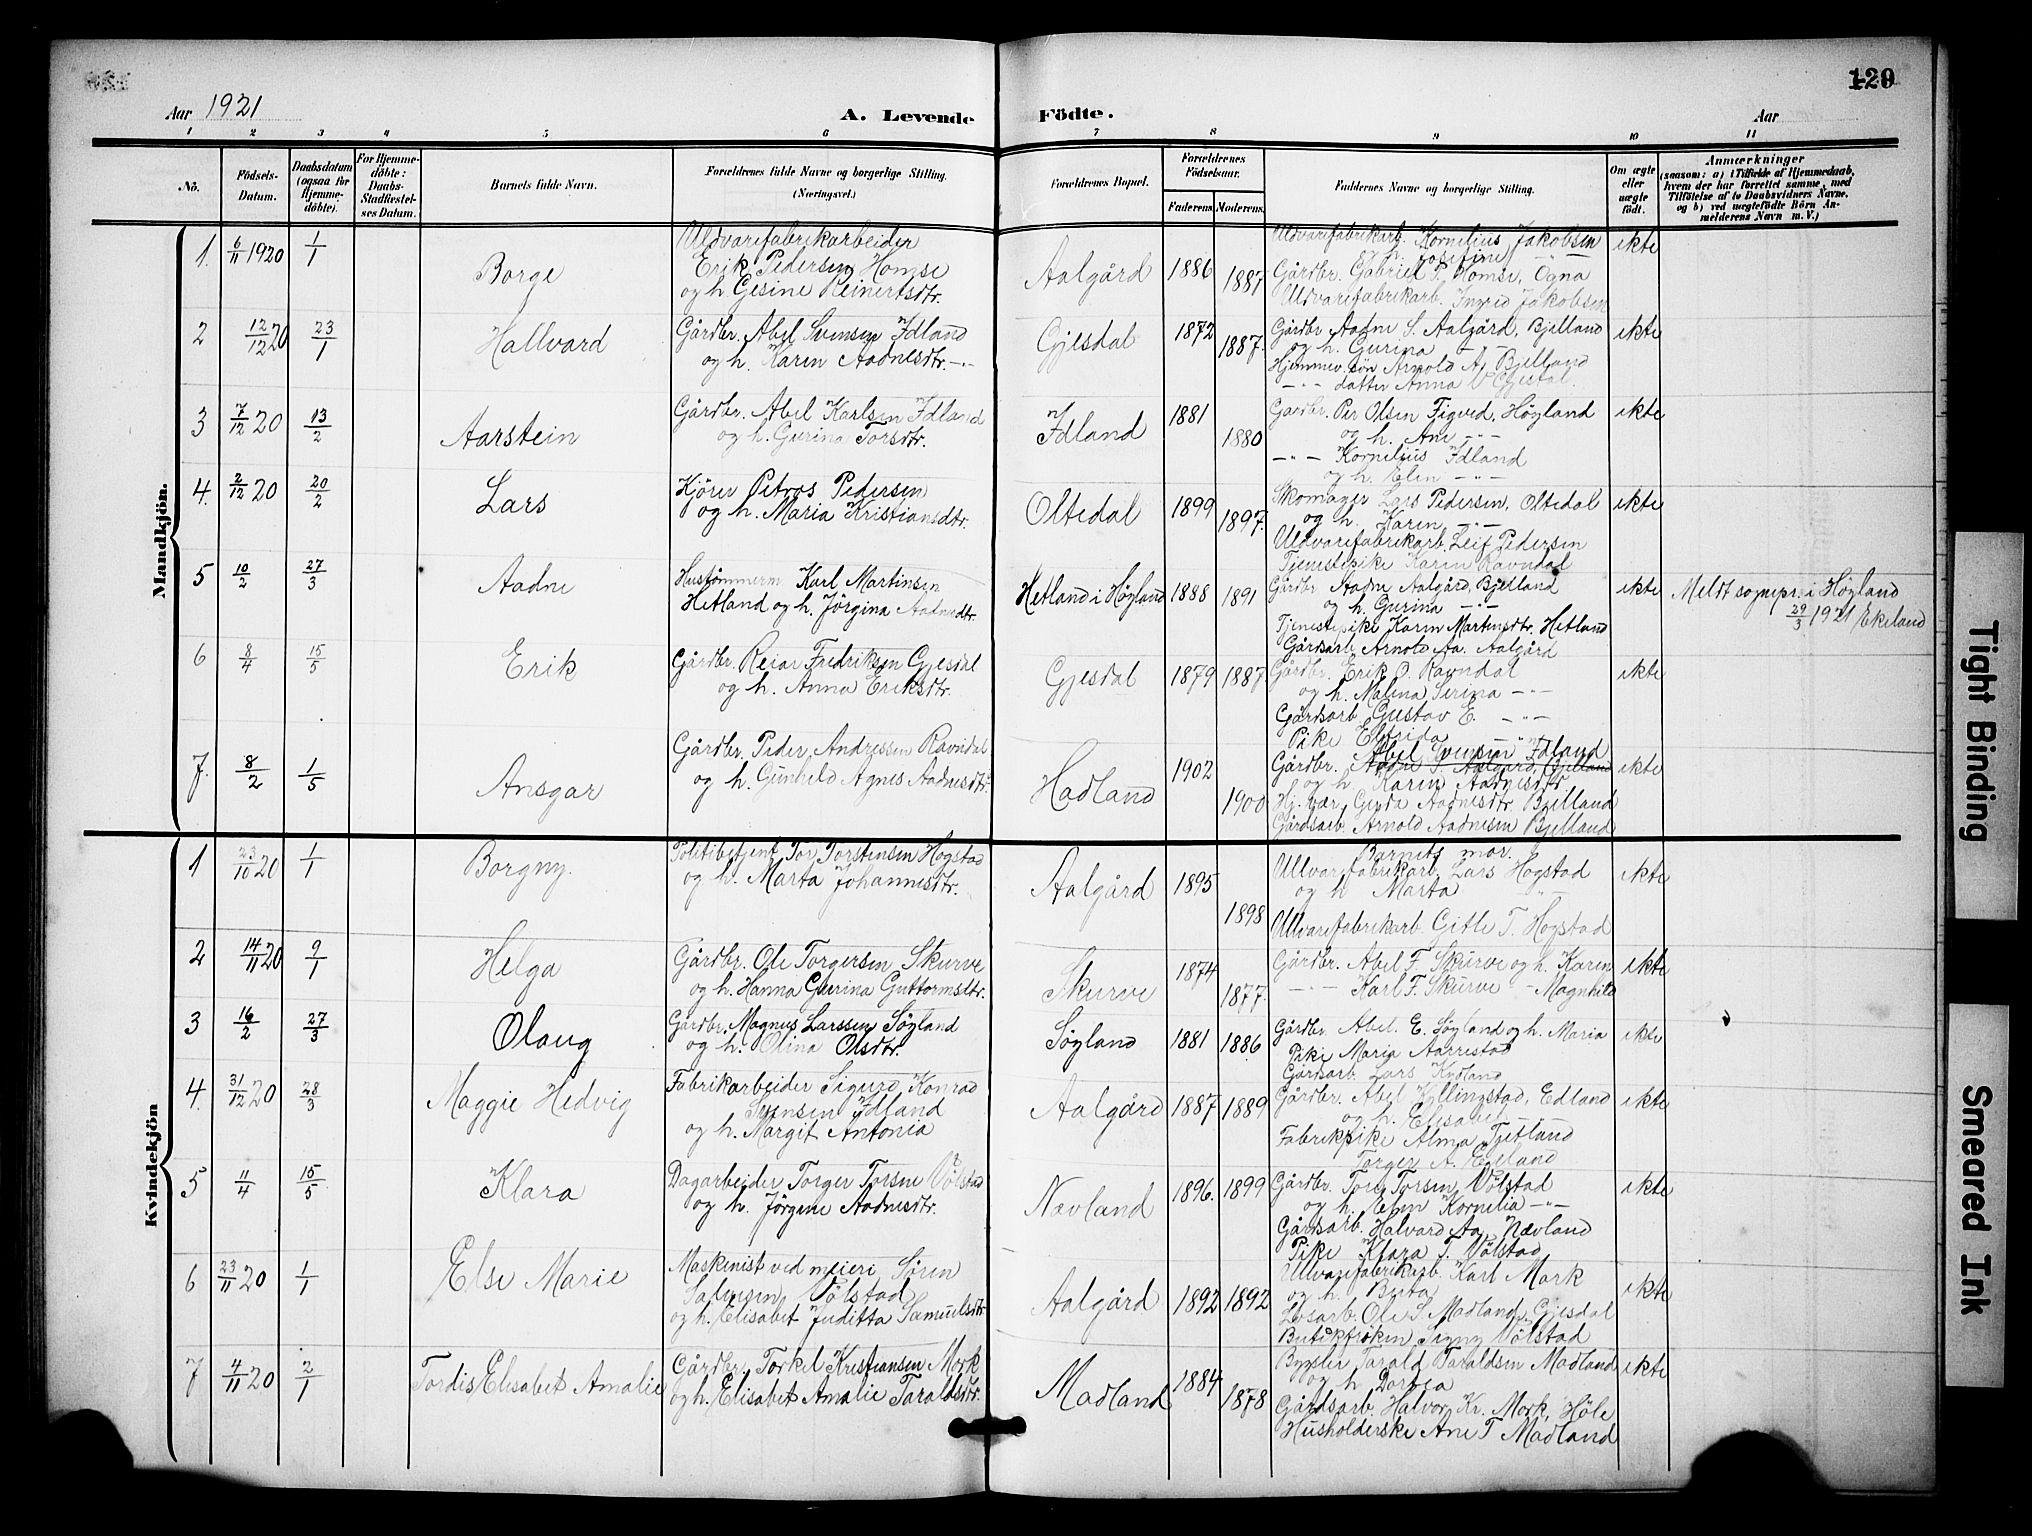 129
Aar 1921
A. Levende Födte.
Aar
1 2 3 4 5 6 7 8 9 10 11
No.
Födsels-Datum.
Daabsdatum (ogsaa for Hjemmedöbte).
For Hjemmedöbte: Daabs-Stadfæstelses Datum.
Barnets fulde Navn.
Forældrenes fulde Navne og borgerlige Stilling. (Næringsvei.)
Forældrenes Bopæl.
Forældrenes Födselsaar.
Faderens. Moderens.
Faddernes Navne og borgerlige Stilling.
Om ægte eller uægte födt.
Anmærkninger
(saasom: a) i Tilfælde af Hjemmedaab, hvem der har forrettet samme, med Tilföielse af to Daabsvidners Navne, og b) ved uægtefödte Börn Anmelderens Navn m. V.)
Mandkjön.
1. 6/11 1920 1/1 Borge
Uldvarefabrikarbeider
Erik Pedersen Homse
og h Gesine Reinertsdtr.
Aalgård 1886 1887
Uldvarefabrikarb. Kornelius Jakobsen
og h. Josefine
Gårdbr. Gabriel P. Homse, Ogna
Uldvarefabrikarb. Ingrid Jakobsen
ekte
2 12/12 20 23/1 Hallvard
Gårdbr. Abel Svensen Idland
og h. Karen Aadnesdtr. -"-
Gjesdal 1872 1887.
Gårdbr Aadne S. Aalgård, Bjelland
og h. Gurina -"-
Hjemmev. søn Arnold A. Bjelland
-"- datter Anna Gjesdal.
ekte
3 7/12 20 13/2 Aarstein
Gårdbr. Abel Karlsen Idland
og h. Gurina Torsdtr.
Idland 1881 1880
Gardbr. Per Olsen Figved, Høyland
og h. Ane -"-
-"- Kornelius Idland
og h. Elen -"-
ekte
4. 2/12 20 20/2 Lars
Kjörer Petros Pedersen
og h. Maria Kristiansdtr.
Oltedal 1899 1897.
Skomager Lars Pedersen, Oltedal
og h. Karen -"-
Uldvarefabrikarb. Leif Pedersen
Tjenestepike Karen Ravndal
ekte
5 10/2 27/3 Aadne
Hustømmerm Karl Martinsen
Hetland og h. Jörgina Aadnesdtr.
Hetland i Høyland 1888 1891
Gårdbr Aadne Aalgård, Bjelland
og h. Gurina -"-
Tjenestepike Karen Martinsdtr. Hetland
Gårdsarb Arnold Aa. Aalgård
ekte
Meldt sognepr. i Høyland
29/3 1921 Ekeland
6 8/4 15/5 Erik
Gårdbr. Reiar Fredriksen Gjesdal
og h. Anna Eriksdtr.
Gjesdal 1879 1887
Gårdbr. Erik O. Ravndal
og h. Malena Serina -"-
Gårdsarb Gustav E. -"-
Pike Elfrida -"-
ekte
7. 8/2 1/5 Ansgar
Gårdbr. Peder Andressen Ravndal
og h. Gunhild Agnes Aadnesdtr.
Hadland 1902 1900
Abel Svensen Idland
Gårdbr. Aadne S. Aalgård, Bjelland
og h. Karen Aadnesdtr
Hj. vær. Gyda Aadnesdtr Bjelland
Gårdsarb Arnold Aadnesen Bjelland
ekte
Kvindekjön
1 23/10 20 1/1 Borgny.
Politibetjent Tor Torstensen Hogstad
og h. Marta Johannesdtr.
Aalgård 1895 1898
Barnets mor.
Ullvarefabrikarb. Lars Hogstad
og h Marta
Ullvarefabrikarb. Gitle T. Hogstad
ekte
2 14/11 20 9/1 Helga
Gårdbr. Ole Torgersen Skurve
og h. Hanna Gurina Guttormsdtr.
Skurve 1874 1877.
Gårdbr. Abel F. Skurve og h. Karen
-"- Karl F. Skurve - Magnhild
ekte
3 16/2 27/3 Olaug
Gårdbr. Magnus Larssen Søyland
og h. Olina Olsdtr.
Søyland 1881 1886
Gårdbr. Abel. E. Søyland og h. Maria
Pike Maria Aarrestad
Gårdsarb. Lars Kydland
ekte
4. 31/12 20 28/3 Maggie Hedvig
Fabrikarbeider Sigurd Konrad
Svensen Idland
og h. Margit Antonia
Aalgård 1887 1889
Gårdbr. Abel Kyllingstad, Edland
og h. Elisabet -"-
Fabrikpike Alma Tjetland
Torger A. Egeland
ekte
5 11/4 15/5 Klara
Dagarbeider Torger Torsen Vølstad
og h. Jörgine Aadnesdtr.
Nævland 1896. 1899
Gårdbr. Tore Torsen Vølstad
og h. Elen Kornelia -"-
Gårdsarb. Halvard Aa. Nævland
Pike Klara T. Vølstad
ekte
6 23/11 20 1/1 Else Marie
Maskenist ved meieri Søren
Salvesen Vølstad
og h. Elisabet Juditta Samuelsdtr
Aalgård 1892 1892
Ullvarefabrikarb. Karl Mork
og h. Berta
Løsarb. Ole S. Madland, Gjesdal
Butikfrøken Signy Vølstad
ekte
7 4/11 20 2/1 Tordis Elisabet Amalie
Gårdbr. Torkel Kristiansen Mork
og h. Elisabet Amalie Taraldsdtr.
Madland 1884 1878
Bygsler Tarald Taraldsen Madland
og h Dortea
Gårdsarb. Halvor Kr. Mork, Høle
Husholderske Ane T Madland
ekte
Tight Binding
Smeared Ink